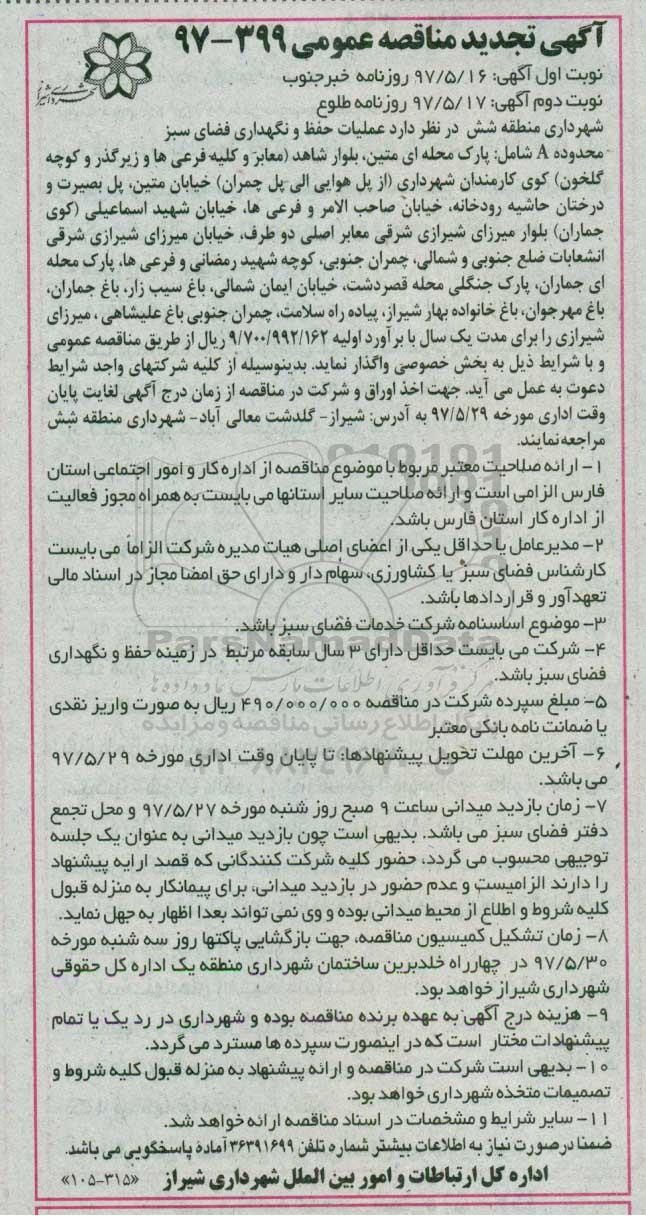 آگهی تجدید مناقصه عمومی ۳۹۹-۹۷
نوبت اول آگهی: ۹۷/۵/۱۶ روزنامه خبرجنوب
نوبت دوم آگهی: ۹۷/۵/۱۷ روزنامه طلوع
شهرداری منطقه شش در نظر دارد عملیات حفظ و نگهداری فضای سبز
محدوده A شامل: پارک محله ای متین، بلوار شاهد (معابر و کلیه فرعی ها و زیرگذر و کوچه
گلخون) کوی کارمندان شهرداری (از پل هوایی الی پل چمران) خیابان متین، پل بصیرت و
درختان حاشیه رودخانه، خیابان صاحب الامر و فرعی ها، خیابان شهید اسماعیلی (کوی
جماران) بلوار میرزای شیرازی شرقی معابر اصلی دو طرف، خیابان میرزای شیرازی شرقی
انشعابات ضلع جنوبی و شمالی، چمران جنوبی، کوچه شهید رمضانی و فرعی ها، پارک محله
ای جماران، پارک جنگلی محله قصردشت، خیابان ایمان شمالی، باغ سیب زار، باغ جماران،
باغ مهرجوان، باغ خانواده بهار شیراز، پیاده راه سلامت، چمران جنوبی باغ علیشاهی، میرزای
شیرازی را برای مدت یک سال با برآورد اولیه ۹/۷۰۰/۹۹۲/۱۶۲ ریال از طریق مناقصه عمومی
و با شرایط ذیل به بخش خصوصی واگذار نماید. بدینوسیله از کلیه شرکتهای واجد شرایط
دعوت به عمل می آید. جهت اخذ اوراق و شرکت در مناقصه از زمان درج آگهی لغایت پایان
وقت اداری مورخه ۹۷/۵/۲۹ به آدرس: شیراز- گلدشت معالی آباد- شهرداری منطقه شش
مراجعه نمایند.
۱- ارائه صلاحیت معتبر مربوط با موضوع مناقصه از اداره کار و امور اجتماعی استان
فارس الزامی است و ارائه صلاحیت سایر استانها می بایست به همراه مجوز فعالیت
از اداره کار استان فارس باشد.
۲- مدیرعامل یا حداقل یکی از اعضای اصلی هیات مدیره شرکت الزاماً می بایست
کارشناس فضای سبز یا کشاورزی، سهام دار و دارای حق امضا مجاز در اسناد مالی
تعهدآور و قراردادها باشد.
۳- موضوع اساسنامه شرکت خدمات فضای سبز باشد.
۴- شرکت می بایست حداقل دارای ۳ سال سابقه مرتبط در زمینه حفظ و نگهداری
فضای سبز باشد.
۵- مبلغ سپرده شرکت در مناقصه ۴۹۰/۰۰۰/۰۰۰ ریال به صورت واریز نقدی
یا ضمانت نامه بانکی معتبر
۶- آخرین مهلت تحویل پیشنهادها: تا پایان وقت اداری مورخه ۹۷/۵/۲۹
می باشد.
۷- زمان بازدید میدانی ساعت ۹ صبح روز شنبه مورخه ۹۷/۵/۲۷ و محل تجمع
دفتر فضای سبز می باشد. بدیهی است چون بازدید میدانی به عنوان یک جلسه
توجیهی محسوب می گردد، حضور کلیه شرکت کنندگانی که قصد ارایه پیشنهاد
را دارند الزامیست و عدم حضور در بازدید میدانی، برای پیمانکار به منزله قبول
کلیه شروط و اطلاع از محیط میدانی بوده و وی نمی تواند بعدا اظهار به جهل نماید.
۸- زمان تشکیل کمیسیون مناقصه، جهت بازگشایی پاکتها روز سه شنبه مورخه
۹۷/۵/۳۰ در چهارراه خلدبرین ساختمان شهرداری منطقه یک اداره کل حقوقی
شهرداری شیراز خواهد بود.
۹- هزینه درج آگهی به عهده برنده مناقصه بوده و شهرداری در رد یک یا تمام
پیشنهادات مختار است که در اینصورت سپرده ها مسترد می گردد.
۱۰- بدیهی است شرکت در مناقصه و ارائه پیشنهاد به منزله قبول کلیه شروط و
تصمیمات متخذه شهرداری خواهد بود.
۱۱- سایر شرایط و مشخصات در اسناد مناقصه ارائه خواهد شد.
ضمنا درصورت نیاز به اطلاعات بیشتر شماره تلفن ۳۶۳۹۱۶۹۹ آماده پاسخگویی می باشد.
اداره کل ارتباطات و امور بین الملل شهرداری شیراز «۳۱۵-۱۰۵»
ParsNamadData